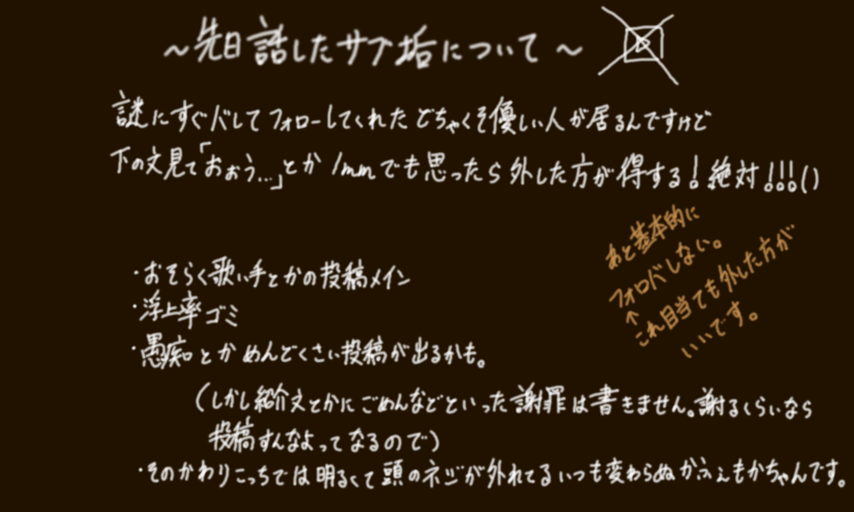 ～先日話したサブ垢について～
謎にすぐドしてフォローしてくれた どちゃくそ優しい人が居るんですけど
下の文見て「おぉう...」とか1mmでも思ったら外した方が得する!絶対!!!()
あと基本的に
フォロバしない。
↑これ目当ても外した方が
いいです。
・おそらく歌い手とかの投稿メイン
・浮上率ゴミ
・愚痴とかめんどくさい投稿が出るかも。
(しかし紹介文とかにごめんなどといった謝罪は書きません。謝るくらいなら
投稿すんなよってなるので)
・そのかわりこっちでは明るくて頭のネジが外れてるいつも変わらぬかふぇもかちゃんです。